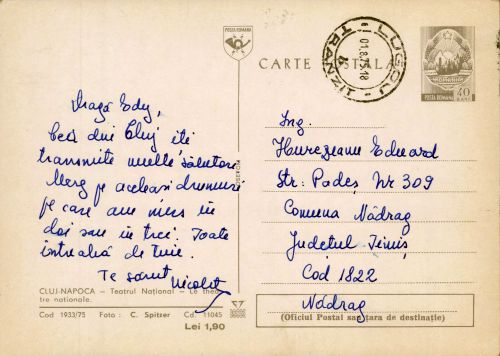 POSTA ROMANA
CARTE POSTALA
LUGOJ
TRANZIT
POSTA ROMANA
40
Dragă Edy,
Cei din Cluj îți
transmite multe salutări
Merg pe aceleași drumuri
pe care am mers în
doi sau în trei. Toate
întreabă de tine.
Te sărut
Nicolet
Ing.
Hurezeanu Eduard
Str. Padeș Nr 309
Comuna Nădrag
Județul Timiș
Cod 1822
Nădrag
(Oficiul Postal sau țara de destinație)
CLUJ-NAPOCA – Teatrul Național – Le théâ-
tre nationale.
Cod 1933/75 Foto : C. Spitzer Cd. 11045
Lei 1,90